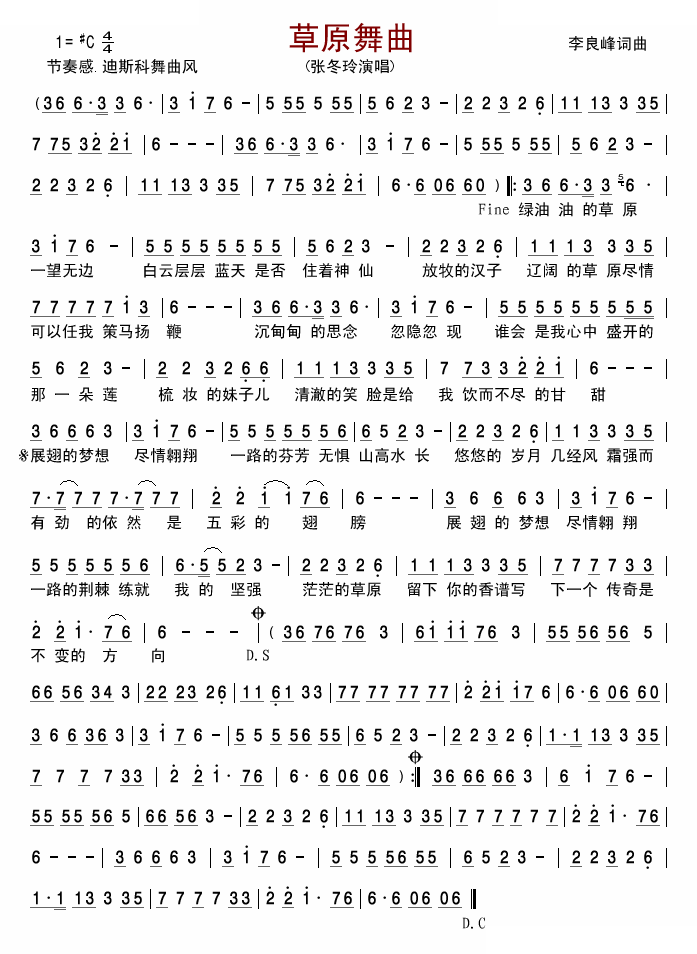 草原舞曲
1=♯C 4/4
李良峰词曲
节奏感.迪斯科舞曲风
(张冬玲演唱)
(36 6·3 3 6· | 3 i 7 6 - | 5 55 5 55 | 5 6 2 3 - | 2 2 3 2 6 | 11 13 3 35 |
7 75 32 21 | 6 - - - | 36 6·3 3 6· | 3 i 7 6 - | 5 55 5 55 | 5 6 2 3 - |
2 2 3 2 6 | 11 13 3 35 | 7 75 32 21 | 6·6 06 60 ) ‖: 3 6 6·3 3 5 6 · |
Fine 绿油 油 的草 原
3 i 7 6 - | 5 5 5 5 5 5 5 5 | 5 6 2 3 - | 2 2 3 2 6 | 1 1 1 3 3 3 5 |
一望无边 白云层层 蓝天 是否 住着神 仙 放牧的汉子 辽阔 的草 原尽情
7 7 7 7 7 i 3 | 6 - - - | 3 6 6·3 3 6· | 3 i 7 6 - | 5 5 5 5 5 5 5 5 5 |
可以任我 策马扬 鞭 沉甸甸 的思念 忽隐忽 现 谁会 是我心中 盛开的
5 6 2 3 - | 2 2 3 2 6 6 | 1 1 1 3 3 3 5 | 7 7 3 3 2 2 i | 6 - - |
那 一 朵 莲 梳 妆 的妹子儿 清澈的笑 脸是给 我 饮而不尽 的甘 甜
3 6 6 6 3 | 3 i 7 6 - | 5 5 5 5 5 5 6 | 6 5 2 3 - | 2 2 3 2 6 | 1 1 3 3 3 5 |
※展翅的梦想 尽情翱翔 一路的芬芳 无惧 山高水 长 悠悠的 岁月 几经风 霜强而
7·7 7 7 7·7 7 7 | 2 2 i i 7 6 | 6 - - - | 3 6 6 6 3 | 3 i 7 6 - |
有 劲 的依 然 是 五 彩 的 翅 膀 展 翅 的 梦想 尽情翱 翔
5 5 5 5 5 5 6 | 6·5 5 2 3 - | 2 2 3 2 6 | 1 1 1 3 3 3 5 | 7 7 7 7 3 3 |
一路的荆棘 练就 我 的 坚强 茫茫的草原 留下 你的香谱写 下一个 传奇是
2 2 i· 7 6 | 6 - - - | (36 76 76 3 | 6i ii 76 3 | 55 56 56 5 |
不 变的 方 向 D.S
66 56 34 3 | 22 23 26 | 11 61 33 | 77 77 77 77 | 2 2i i7 6 | 6·6 06 60 |
3 6 6 36 3 | 3 i 7 6 - | 5 5 5 56 55 | 6 5 2 3 - | 2 2 3 2 6 | 1·1 13 3 35 |
7 7 7 7 33 | 2 2 i· 76 | 6·6 06 06 ) :‖ 36 66 66 3 | 6 i 7 6 - |
55 55 56 5 | 66 56 3 - | 2 2 3 2 6 | 11 13 3 35 | 7 7 7 7 7 7 | 2 2 i· 76 |
6 - - - | 3 6 6 6 3 | 3 i 7 6 - | 5 5 5 56 55 | 6 5 2 3 - | 2 2 3 2 6 |
1·1 13 3 35 | 7 7 7 7 33 | 2 2 i· 76 | 6·6 06 06 ‖
D.C